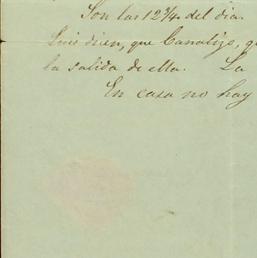 Son las 12 3/4 del dia.
dicen, que Canalizo, q
la salida de ella. La
En casa no hay